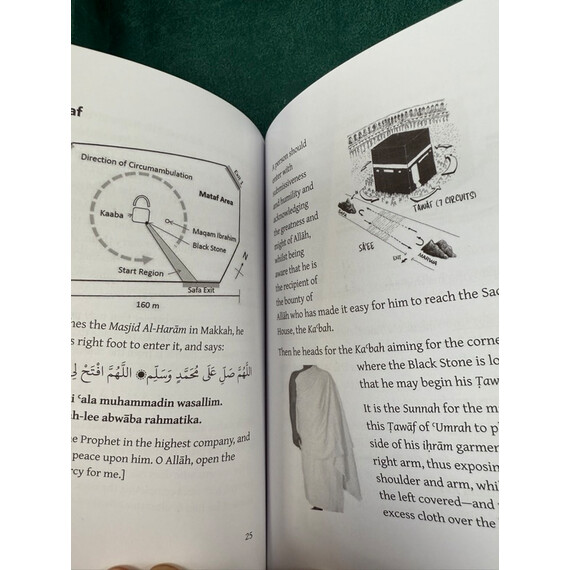 af
Direction of Circumambulation
Exit
Mataf Area
Kaaba
Maqam Ibrahim
Black Stone
N
Start Region
Safa Exit
160 m
nes the Masjid Al-Harām in Makkah, he
s right foot to enter it, and says:
اللَّهُمَّ صَلِّ عَلَى مُحَمَّدٍ وَسَلِّمْ اللَّهُمَّ افْتَحْ لِي
i ʿala muhammadin wasallim.
h-lee abwāba rahmatika.
e Prophet in the highest company, and
peace upon him. O Allāh, open the
rcy for me.]
25
A person should
enter with
submissiveness
and humility and
acknowledging
the greatness and
might of Allāh,
whilst being
aware that he is
the recipient of
the bounty of
Allāh who has made it easy for him to reach the Sac
House, the Kaʿbah.
TAWAF (7 CIRCUITS)
SAFA
SA'EE
EXIT
MARWA
Then he heads for the Kaʿbah aiming for the corne
where the Black Stone is lo
that he may begin his Ṭaw
It is the Sunnah for the m
this Ṭawāf of ʿUmrah to pl
side of his iḥrām garmen
right arm, thus exposin
shoulder and arm, whil
the left covered—and
excess cloth over the